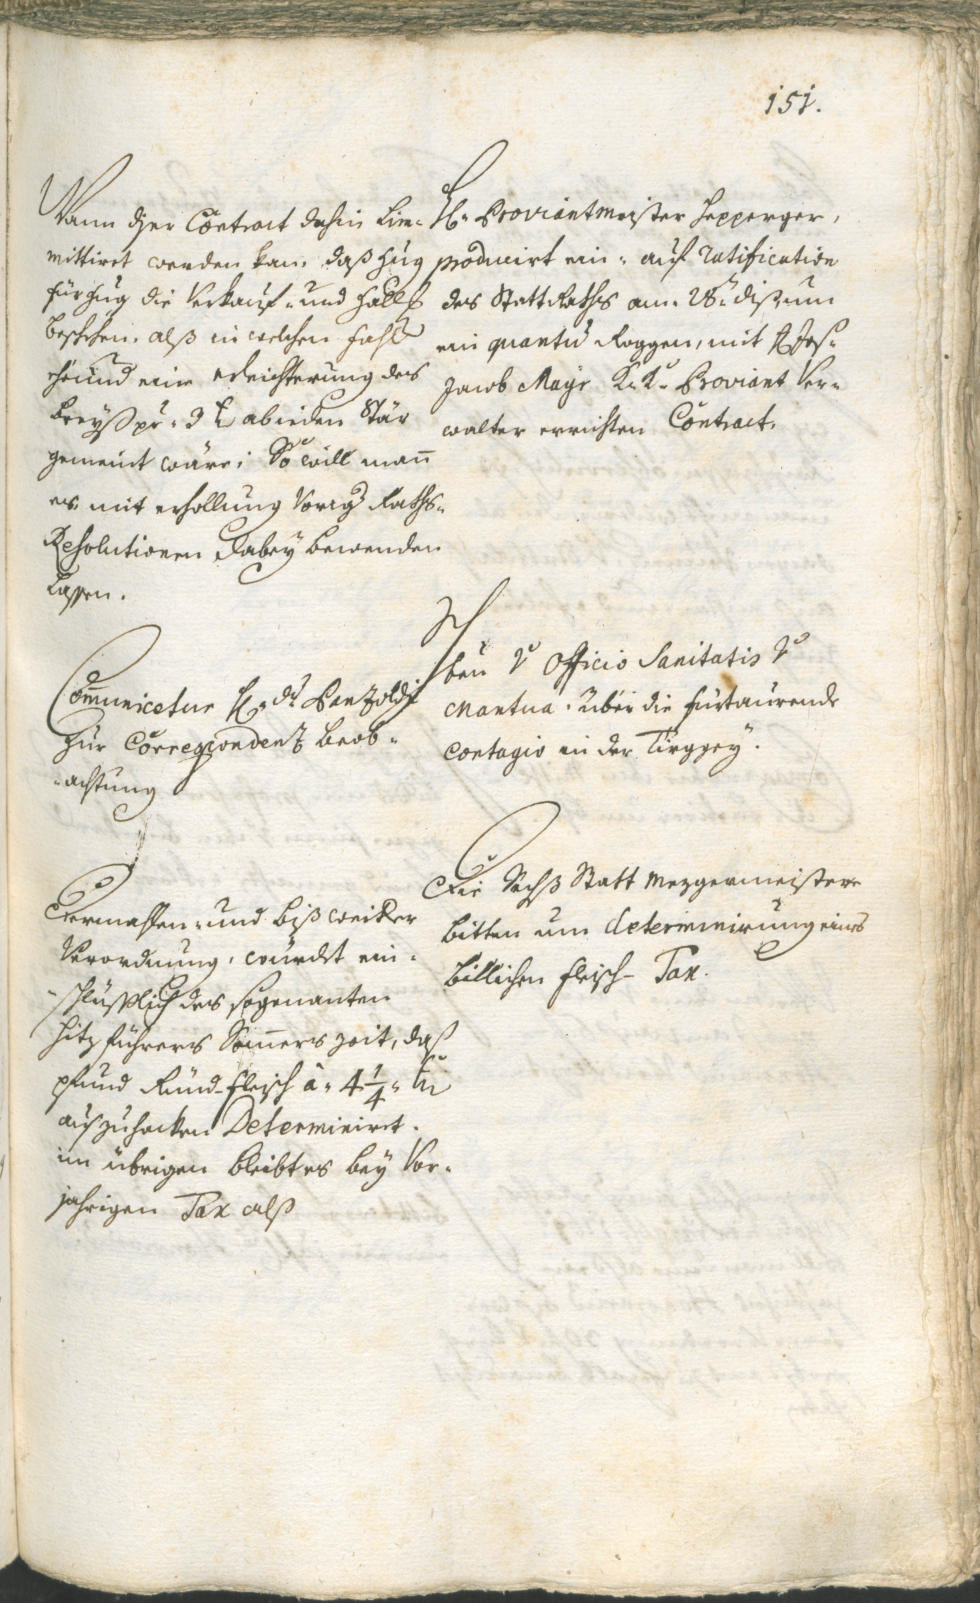 151.
Wann dser Contract dahin Lim-
mittirt werden kan, daß Zug
für Zug die Verkauf- und Halls
beschehen, alß in welchen Fahl
und eine erleichterung des
Preyß pr: 3 x ab ieden Stär
gemeint wäre; So will mann
es mit erhollung Vorig Raths-
Resolutionen dabey bewenden
Lassen.
H: Proviantmeister Hepperger,
producirt ein- auf ratification
des StattRaths am 28ten diß um
ein quantu Roggen, mit H Jos:
Jacob Mayr K: K: Proviant Ver-
walter errichten Contract.
Communicetur H: Dr Penzoldi
Zur Correspondenz beob-
achtung
ben V Officio Sanitatis V
Mantua. über die fürtaurende
Contagio in der Türggey.
Dermahlen- und biß weitter
Verordnung, würdet ein-
schlüßlich des sogenanten
hitz führers Sommers zeit, daß
pfund Rind-Fleisch à 4 1/4 xr
auszuhacken Determinirt.
im übrigen bleibt es bey Vor-
jährigen Tax alß
Die Sechß Statt Mezgermeistere
bitten um determinirung eines
billichen Fleisch-Tax.